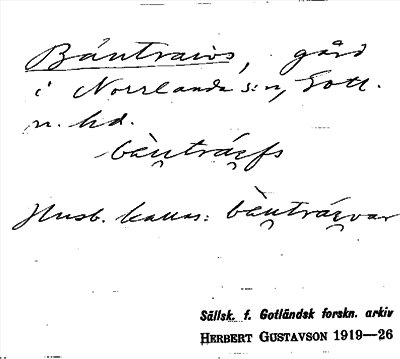 Bántraivs, gård
i Norrlanda s:n, Gotl.
n. hd.
bèṋtrái̯fs
Husb. kallas: bèṋtrái̯var
Sällsk. f. Gotländsk forskn. arkiv
HERBERT GUSTAVSON 1919—26